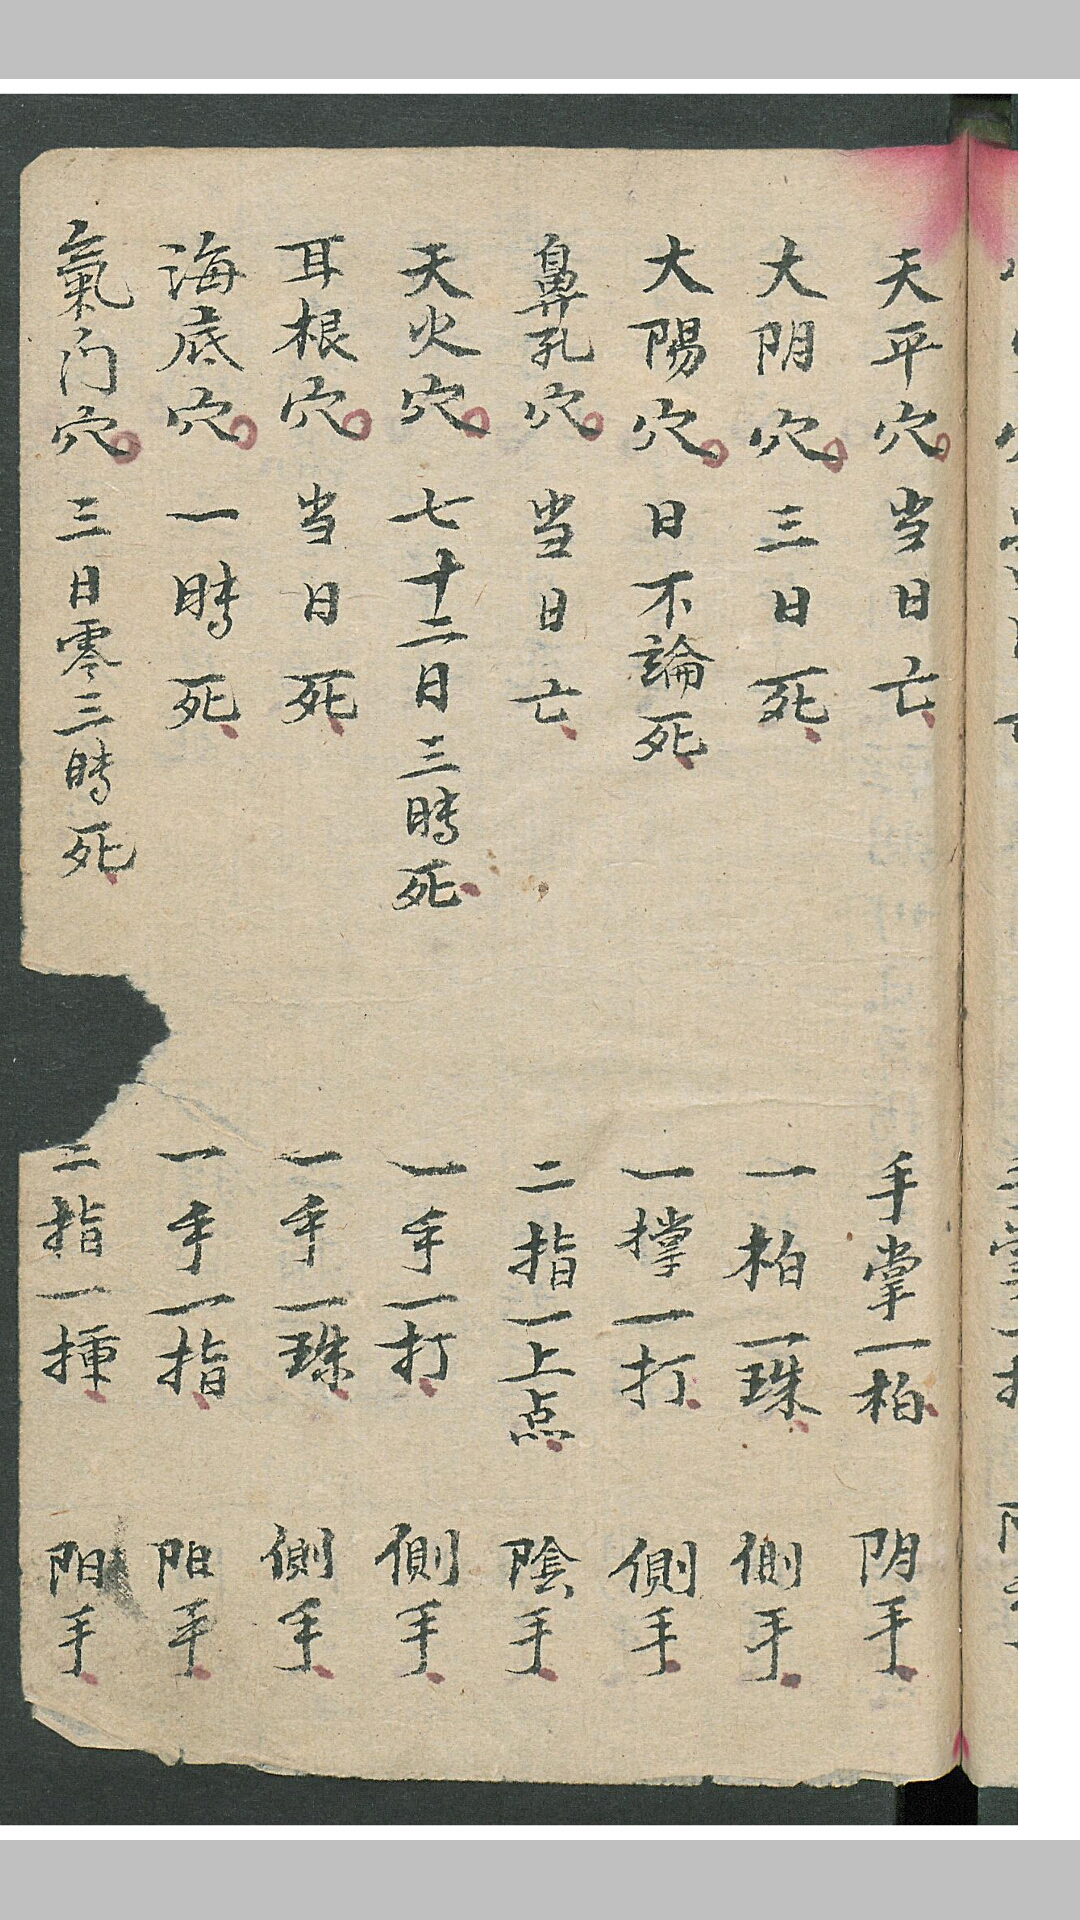 天平穴 当日亡 手掌一柏 阴手
大阴穴 三日死 一柏一珠 側手
大陽穴 日不論死 一撑一打 側手
鼻孔穴 当日亡 二指一上点 陰手
天火穴 七十二日三時死 一手一打 側手
耳根穴 当日死 一手一珠 側手
海底穴 一時死 一手一指 阳手
氣门穴 三日零三時死 二指一揰 阳手